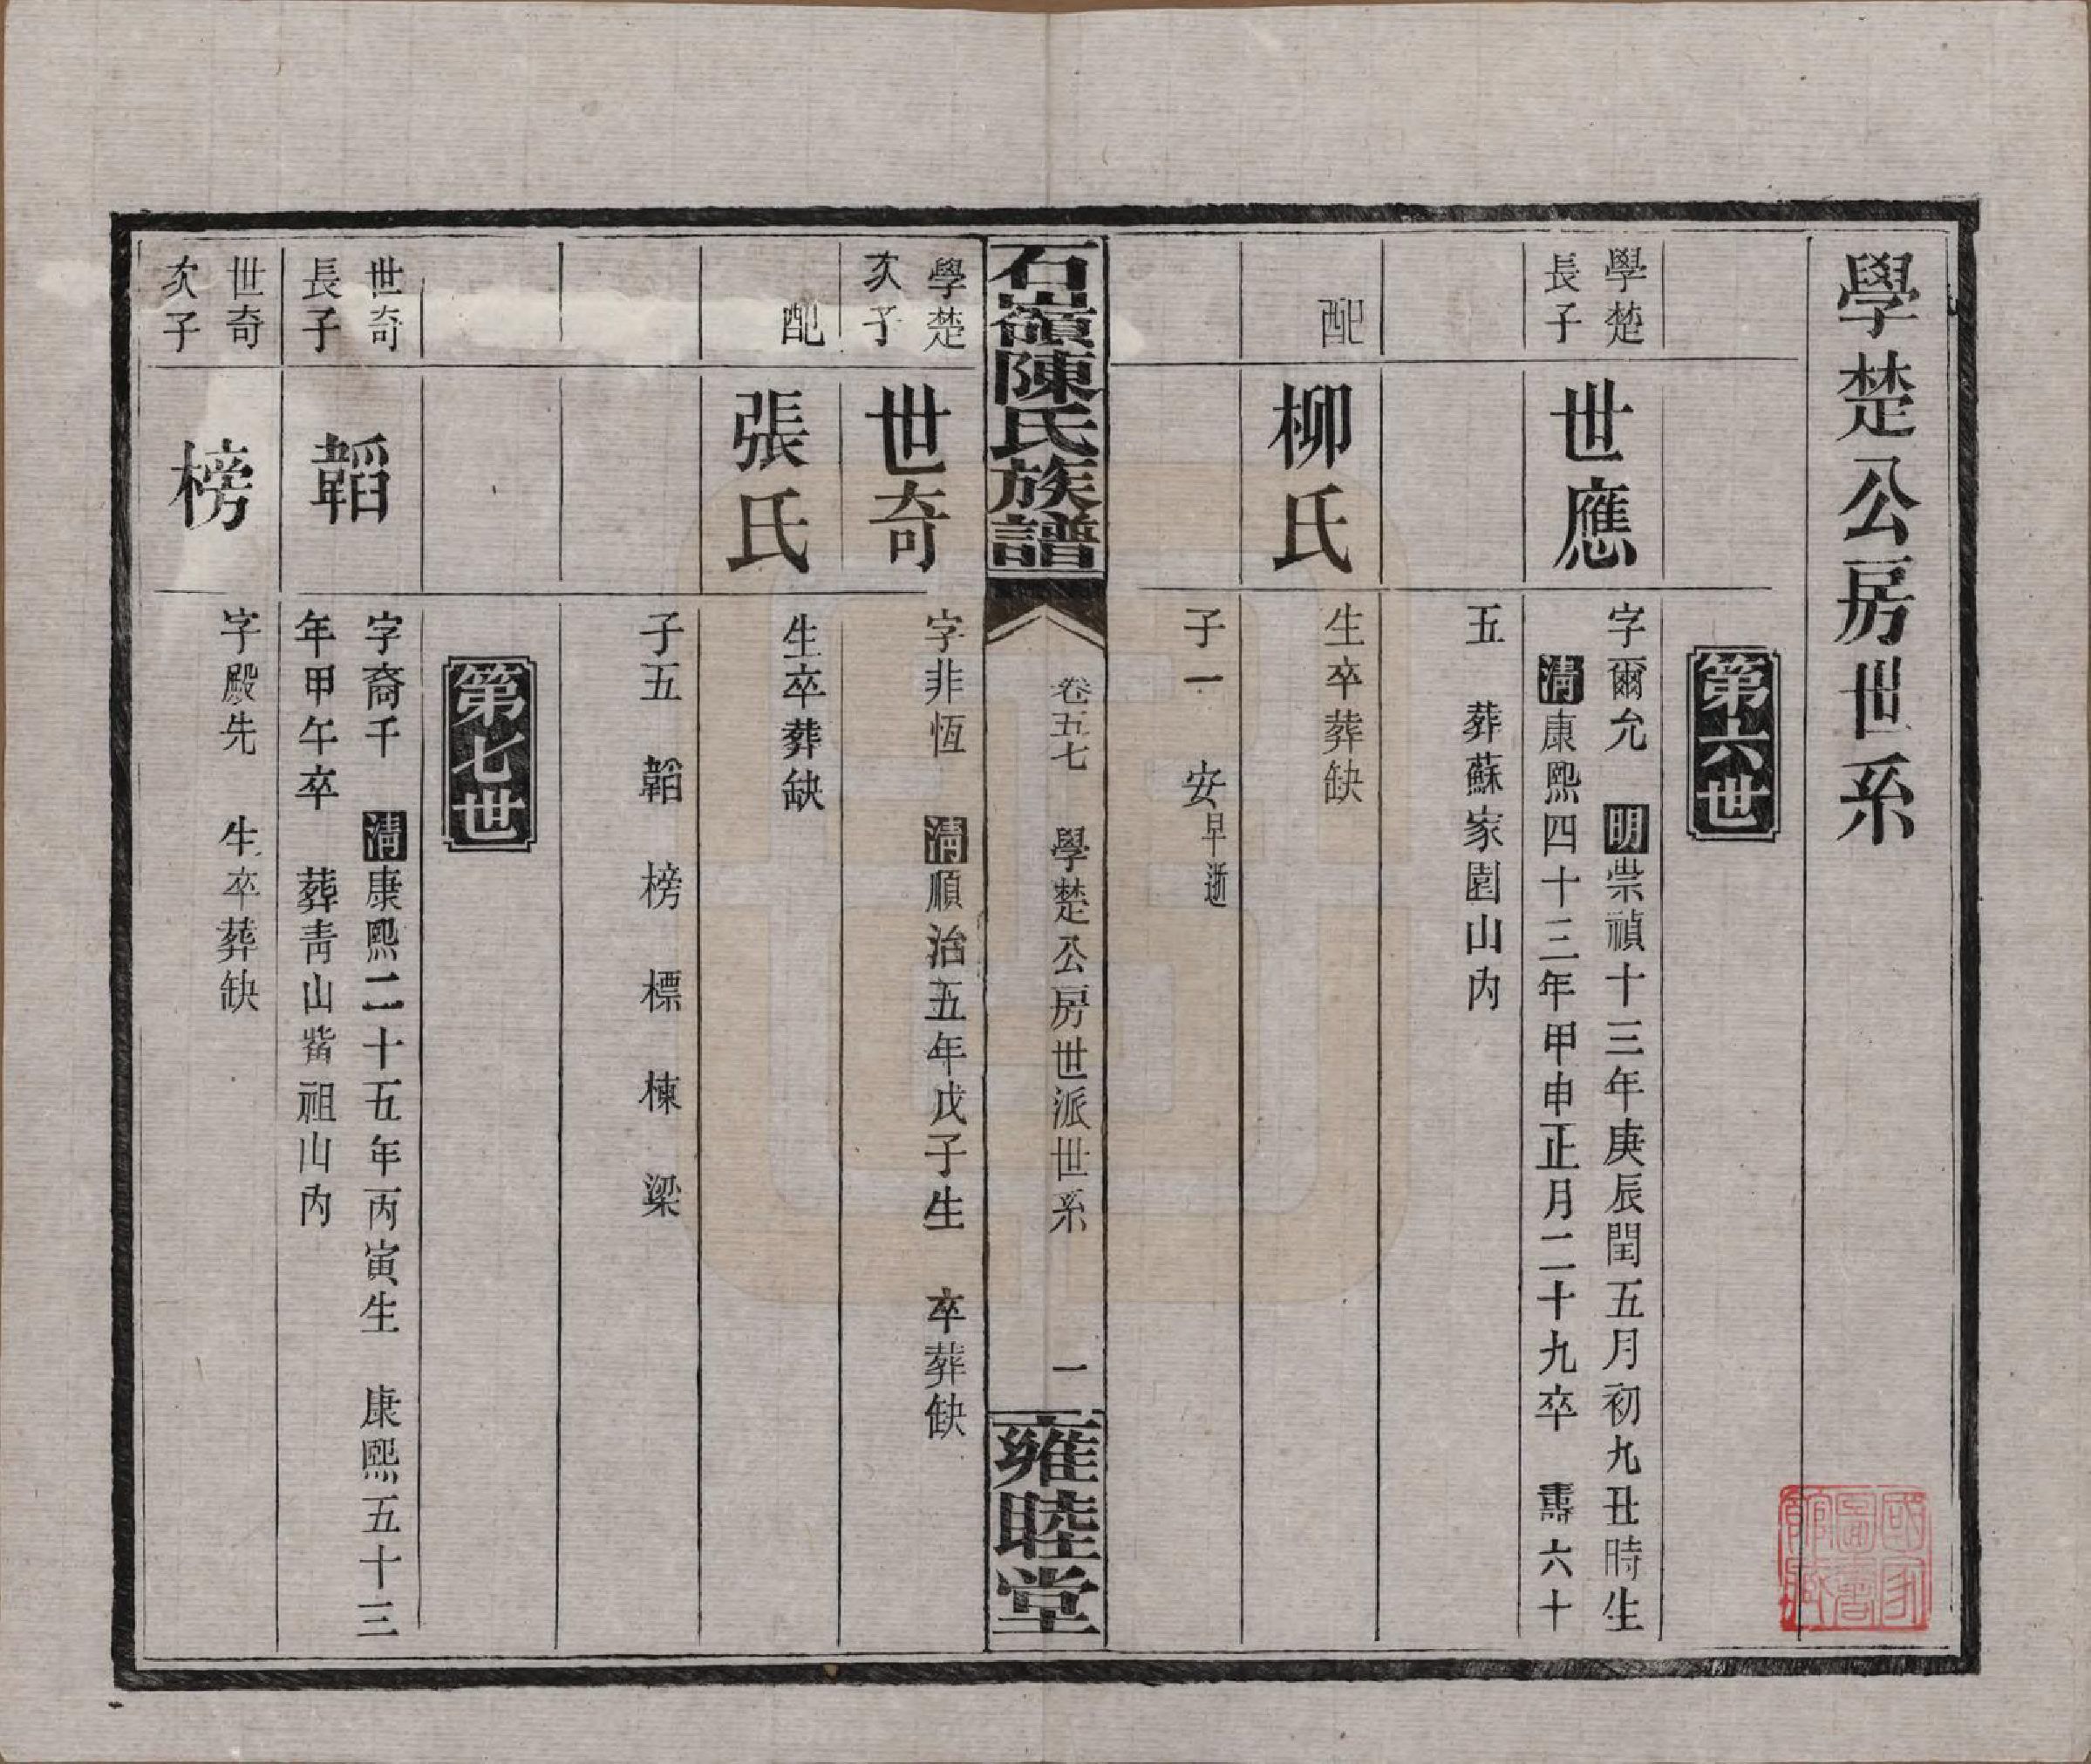 學楚公房世系
第六世
學楚
長子
世應
字爾允 明崇禎十三年庚辰閏五月初九丑時生
清康熙四十三年甲申正月二十九卒 壽六十
五 葬蘇家園山內
配
柳氏
生卒葬缺
子一 安早逝
石嶺陳氏族譜
卷五七 學楚公房世派世系 一
雍睦堂
學楚
次子
世奇
字非恆 清順治五年戊子生 卒葬缺
配
張氏
生卒葬缺
子五 韜 榜 標 棟 梁
第七世
世奇
長子
韜
字裔千 清康熙二十五年丙寅生 康熙五十三
年甲午卒 葬青山觜祖山內
世奇
次子
榜
字殿先 生卒葬缺
國家
圖書
館藏